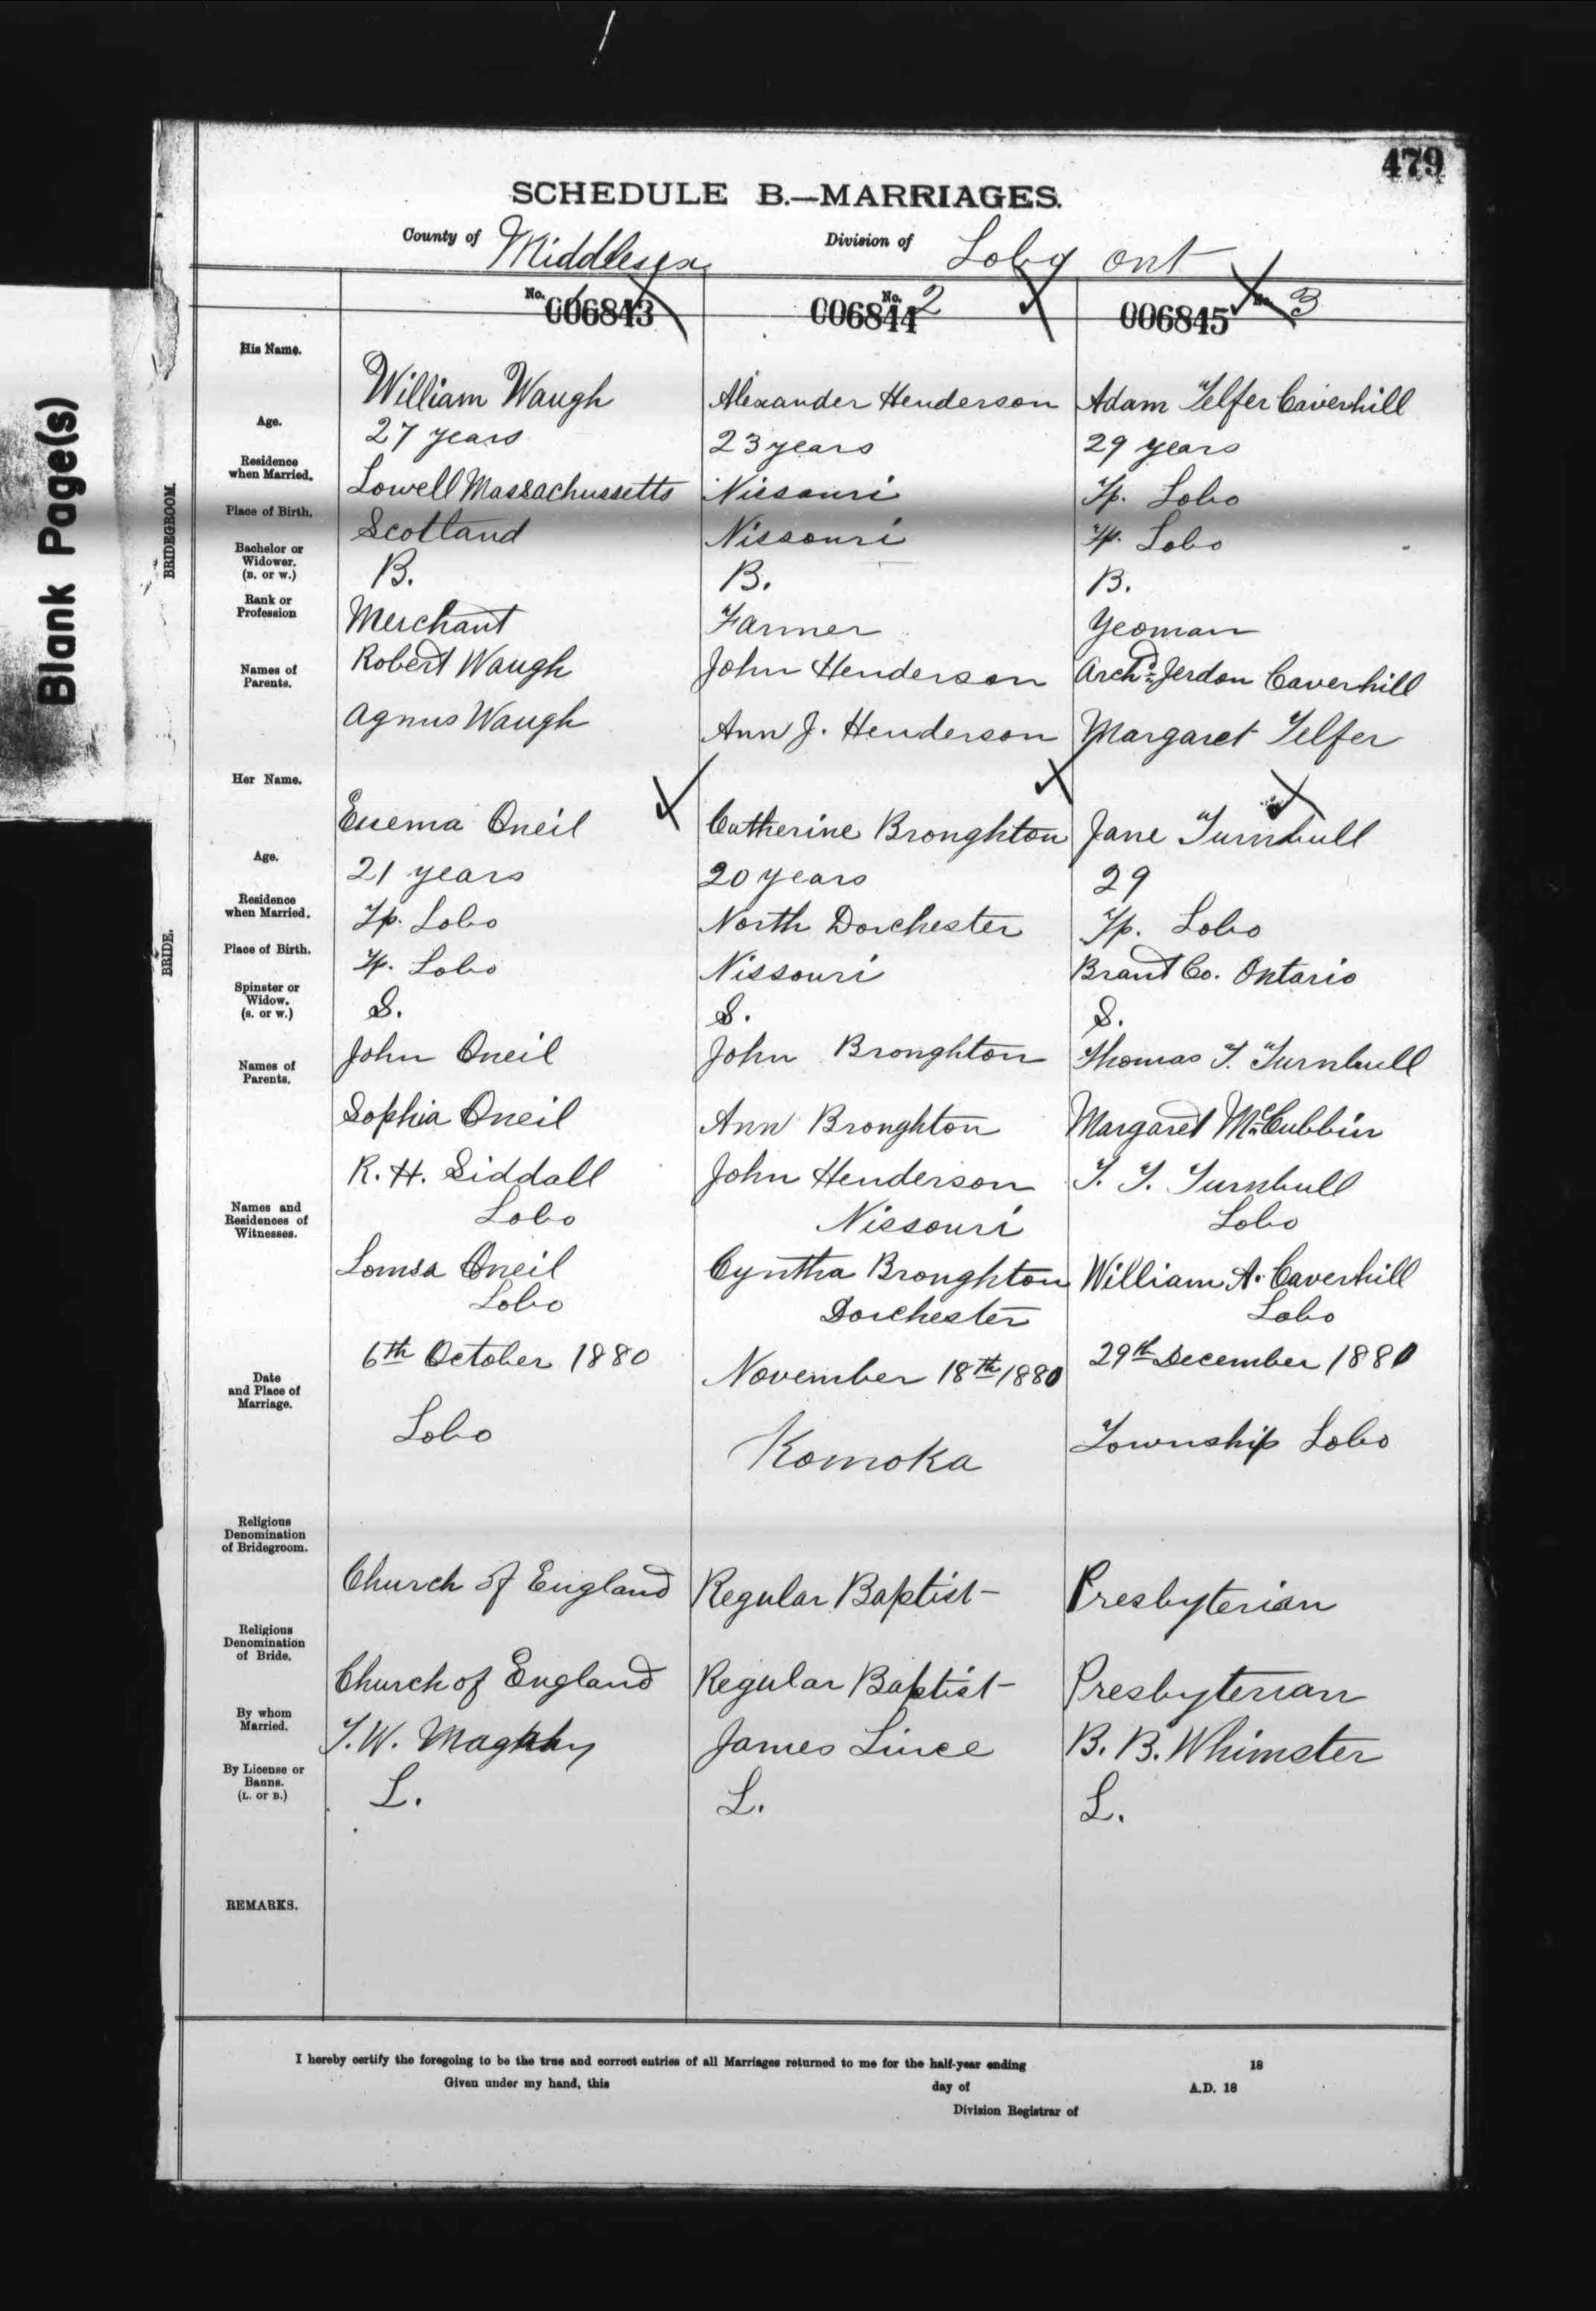 Blank Page(s)
479
SCHEDULE B.—MARRIAGES.
County of Middlesex Division of Lobo Ont
No. 1 006843 No. 2 006844 No. 3 006845
BRIDEGROOM.
His Name. William Waugh Alexander Henderson Adam Telfer Caverhill
Age. 27 years 23 years 29 years
Residence when Married. Lowell Massachussetts Nissouri Tp. Lobo
Place of Birth. Scotland Nissouri Tp. Lobo
Bachelor or Widower. (B. or W.) B. B. B.
Rank or Profession Merchant Farmer Yeoman
Names of Parents. Robert Waugh John Henderson Archd. Jerdon Caverhill
Agnus Waugh Ann J. Henderson Margaret Telfer
BRIDE.
Her Name. Oneil Catherine Broughton Jane Turnbull
Age. 21 years 20 years 29
Residence when Married. Tp. Lobo North Dorchester Tp. Lobo
Place of Birth. Tp. Lobo Nissouri Brant Co. Ontario
Spinster or Widow. (S. or W.) S. S. S.
Names of Parents. John Oneil John Broughton Thomas T. Turnbull
Sophia Oneil Ann Broughton Margaret McCubbin
Names and Residences of Witnesses. R. H. Siddall John Henderson T. T. Turnbull
Lobo Nissouri Lobo
Louisa Oneil Cyntha Broughton William A. Caverhill
Lobo Dorchester Lobo
Date and Place of Marriage. 6th October 1880 November 18th 1880 29th December 1880
Lobo Komoka Township Lobo
Religious Denomination of Bridegroom. Church of England Regular Baptist Presbyterian
Religious Denomination of Bride. Church of England Regular Baptist Presbyterian
By whom Married. T. W. James Lince B. B. Whimster
By License or Banns. (L. or B.) L. L. L.
REMARKS.
I hereby certify the foregoing to be the true and correct entries of all Marriages returned to me for the half-year ending 18
Given under my hand, this day of A.D. 18
Division Registrar of